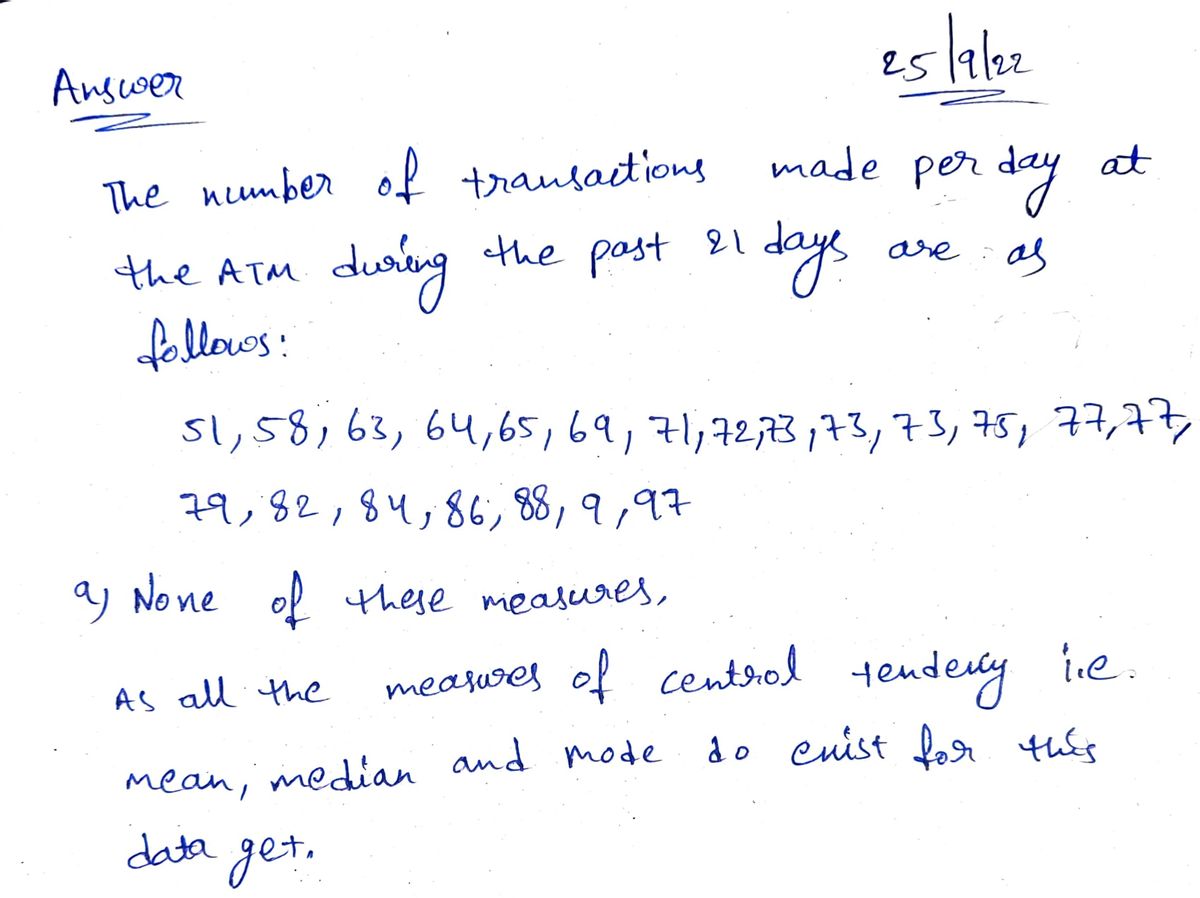 Answer
25/9/22
The number of transactions made per day at
the ATM during the past 21 days are as
follows:
51, 58, 63, 64, 65, 69, 71, 72, 73, 73, 73, 75, 77, 77,
79, 82, 84, 86, 88, 9, 97
a) None of these measures,
As all the measures of central tendency i.e.
mean, median and mode do exist for this
data set.